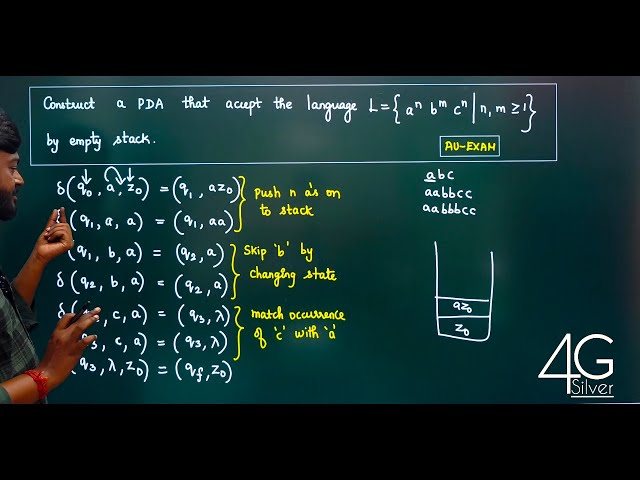 Construct a PDA that accept the language L = { aⁿ bᵐ cⁿ | n, m ≥ 1 }
by empty stack.
AU-EXAM
δ(q₀, a, z₀) = (q₁, az₀)
(q₁, a, a) = (q₁, aa)
push n a's on
to stack
(q₁, b, a) = (q₂, a)
δ(q₂, b, a) = (q₂, a)
Skip 'b' by
changing state
δ( , c, a) = (q₃, λ)
₃, c, a) = (q₃, λ)
match occurrence
of 'c' with 'a'
(q₃, λ, z₀) = (q_f, z₀)
abc
aabbcc
aabbbcc
az₀
z₀
4G
Silver